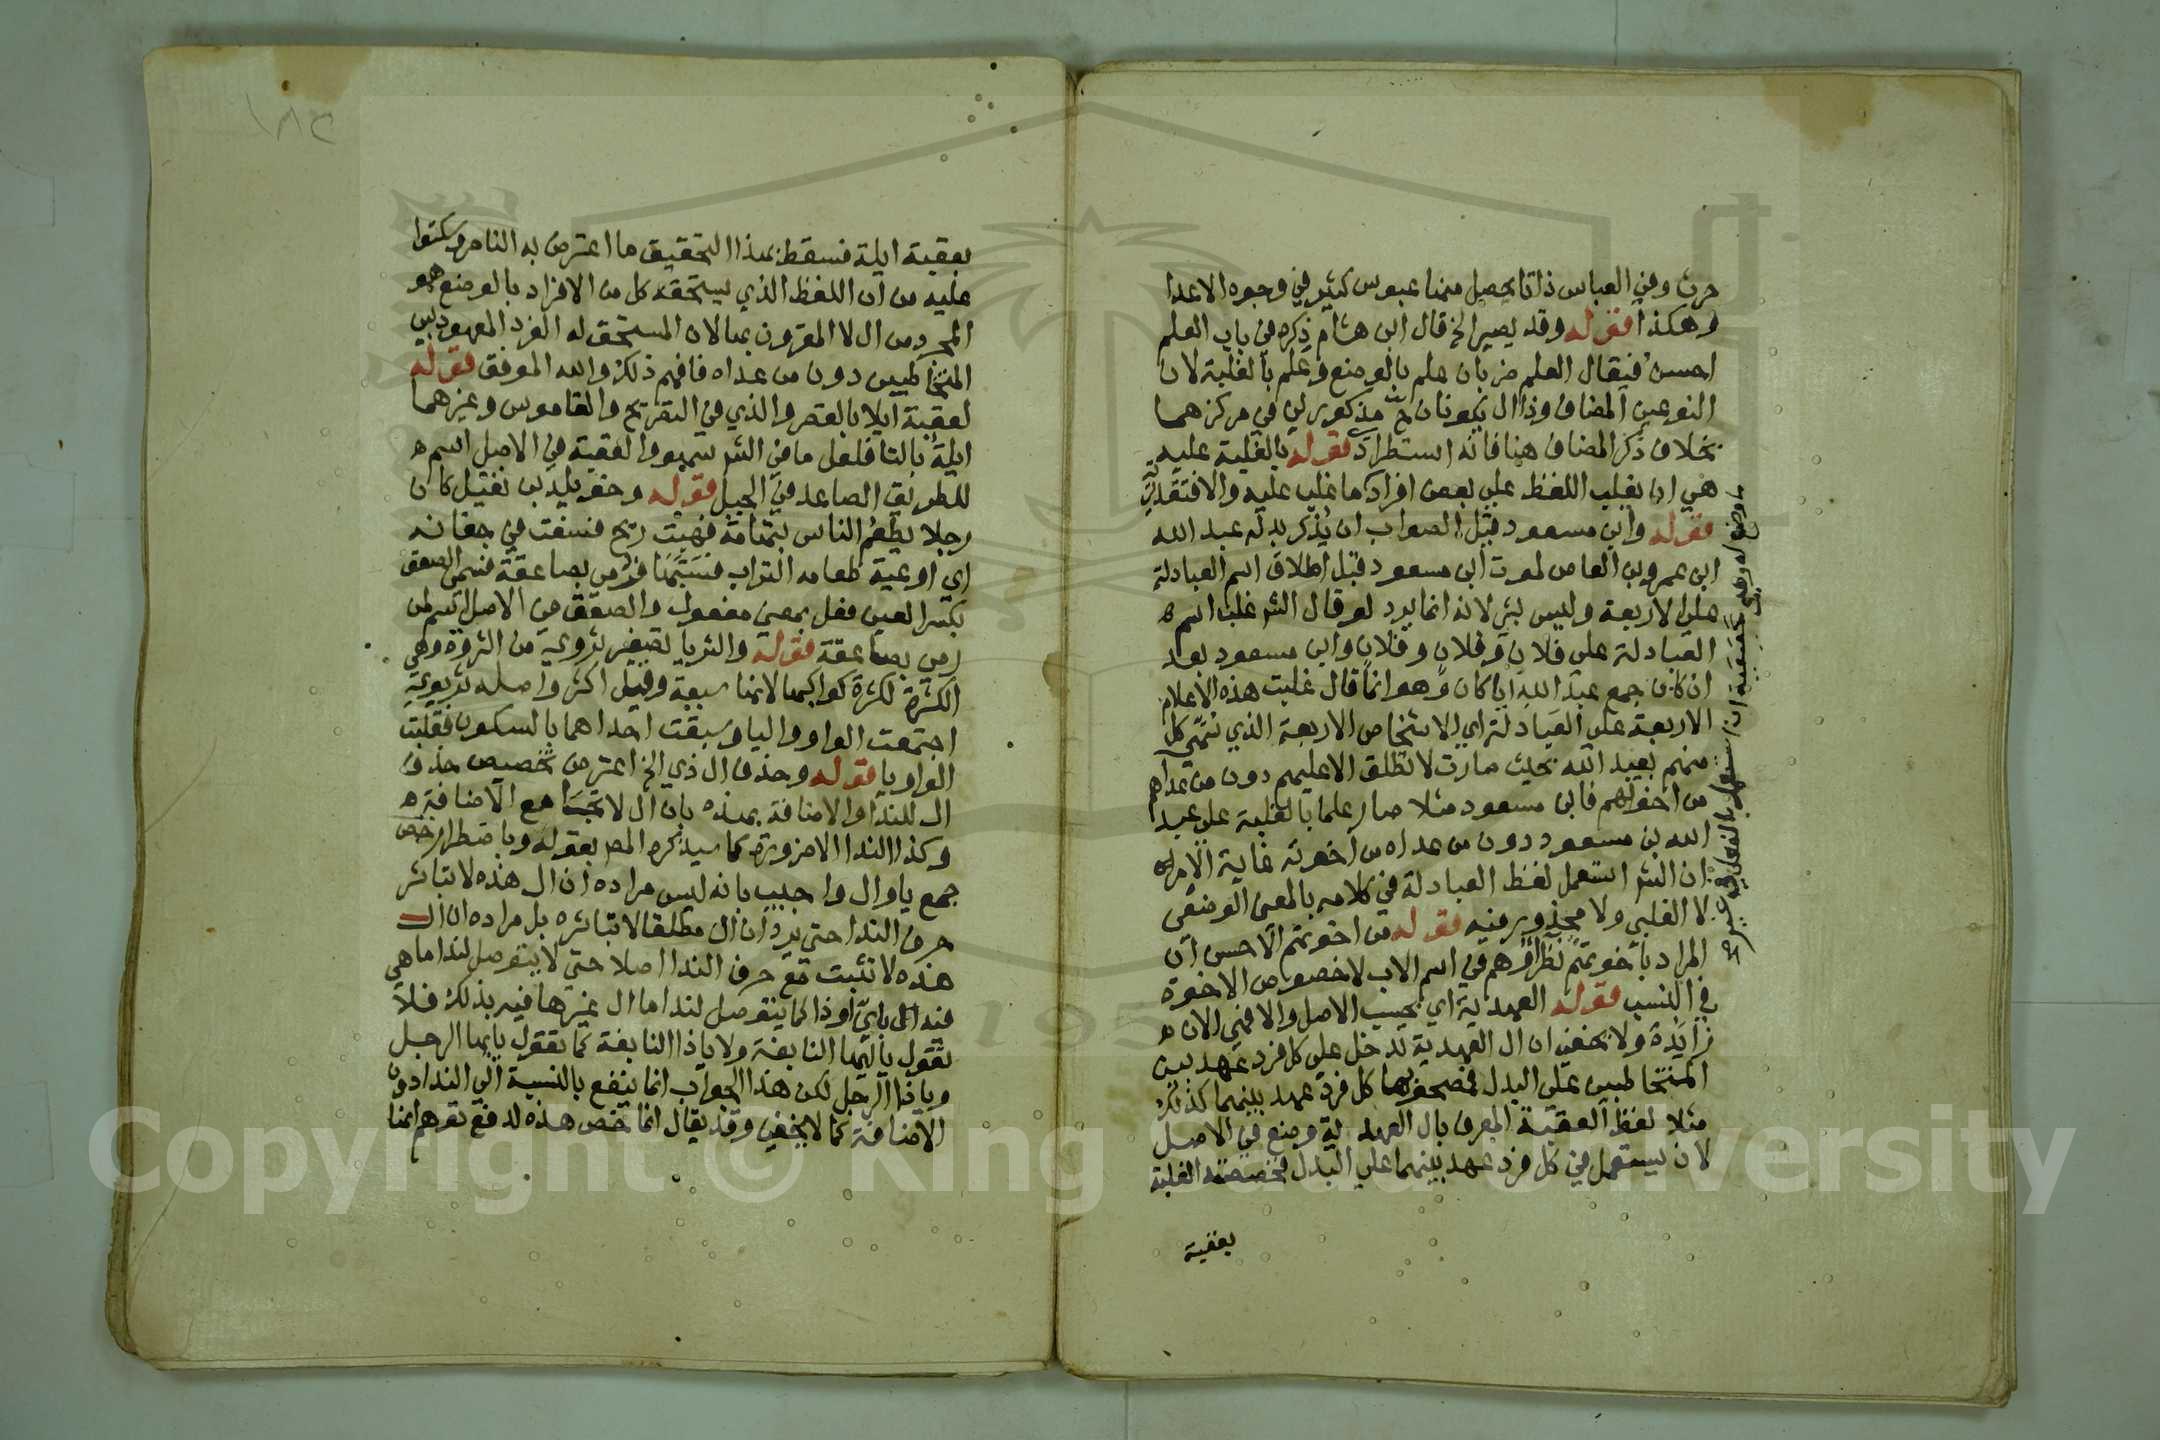 حرث وفي العباس ذاتا يحصل منها عبوس كثير في وجوه الاعدا
وهكذا فقوله وقد يصير الخ قال ابن هشام ذكره في باب العلم
احسن فيقال العلم ضربان علم بالوضع وعلم بالغلبة لان
النوعين المضاف وذا ال يكونان ح مذكورين في مركزهما
بخلاف ذكر المضاف هنا فانه استطراد فقوله بالغلبة عليه
هي ان يغلب اللفظ على بعض افراد ما غلب عليه والا فتقديرية
فقوله وابن مسعود قيل الصواب ان يذكر بدله عبد الله
ابن عمرو بن العاص لموت ابن مسعود قبل اطلاق اسم العبادلة
على الاربعة وليس بشي لانه انما يرد لو قال الش غلب اسم
العبادلة على فلان وفلان وفلان وابن مسعود بعد
ان كان جمع عبد الله ايا كان وهو انما قال غلبت هذه الاعلام
الاربعة على العبادلة اي الاشخاص الاربعة الذي سمى كل
منهم بعبد الله بحيث صارت لا تطلق الا عليهم دون من عداهم
من اخوتهم فابن مسعود مثلا صار علما بالغلبة على عبد
الله بن مسعود دون من عداه من اخوته غاية الامر
ان الش استعمل لفظ العبادلة في كلامه بالمعنى الوضعى
لا الغلبي ولا محذور فيه فقوله من اخوتهم الاحسن ان
المراد باخوتهم نظراؤهم في اسم الاب لا خصوص الاخوة
في النسب فقوله العهدية اي بحسب الاصل والا فهي الان
زايدة ولا يخفى ان ال العهدية تدخل على كل فرد عهد بين
المتخاطبين على البدل فمصحوبها كل فرد عهد بينهما كذلك
مثلا لفظ العقبة المعرف بال العهدية وضع في الاصل
لان يستعمل في كل فرد عهد بينهما على البدل فخصصته الغلبة
بعقبة
بعقبة ايلة فسقط بهذا التحقيق ما اعترض به الناصر وسكتوا
عليه من ان اللفظ الذي يستحقه كل من الافراد بالوضع هو
المجرد من ال لا المقرون بها لان المستحق له الفرد المعهود بين
المتخاطبين دون من عداه فافهم ذلك والله الموفق فقوله
لعقبة ايلا بالقصر والذي في التصريح والقاموس وغيرهما
ايلة بالتا فلعل ما في الش سهو والعقبة في الاصل اسم
للطريق الصاعد في الجبل فقوله وخويلد بن نفيل كان
رجلا يطعم الناس بتهامة فهبت ريح فسفت في جفانه
اي اوعية طعامه التراب فشتمها فرمي بصاعقة فسمى الصعق
بكسر العين فعل بمعنى مفعول والصعق في الاصل اسم لمن
رمي بصاعقة فقوله والثريا تصغير ثروى من الثروة وهي
الكثرة لكثرة كواكبها لانها سبعة وقيل اكثر واصله ثريوى
اجتمعت الواو واليا وسبقت احداهما بالسكون فقلبت
الواو يا فقوله وحذف ال ذي الخ اعترض تخصيص حذف
ال للندا والاضافة بهذه بان ال لا تجامع الاضافة
وكذا الندا الا ضرورة كما سيذكره المص بقوله وباضطرار خص
جمع يا وال واجيب بانه ليس مراده ان ال هذه لا تباشر
حرف الندا حتى يرد ان ال مطلقا لا تباشره بل مراده ان ال
هذه لا تثبت مع حرف الندا اصلا حتى لا يتوصل لندا ما هي
فيه ال باي او ذا كما يتوصل لندا ما ال غيرها فيه بذلك فلا
تقول يا ايها النابغة ولا يا ذا النابغة كما تقول يا يها الرجل
ويا ذا الرجل لكن هذا الجواب انما ينفع بالنسبة الى الندا دون
الاضافة كما لا يخفى وقد يقال انما خص هذه لدفع توهم انها
١٨٢
Copyright © King Saud University
195